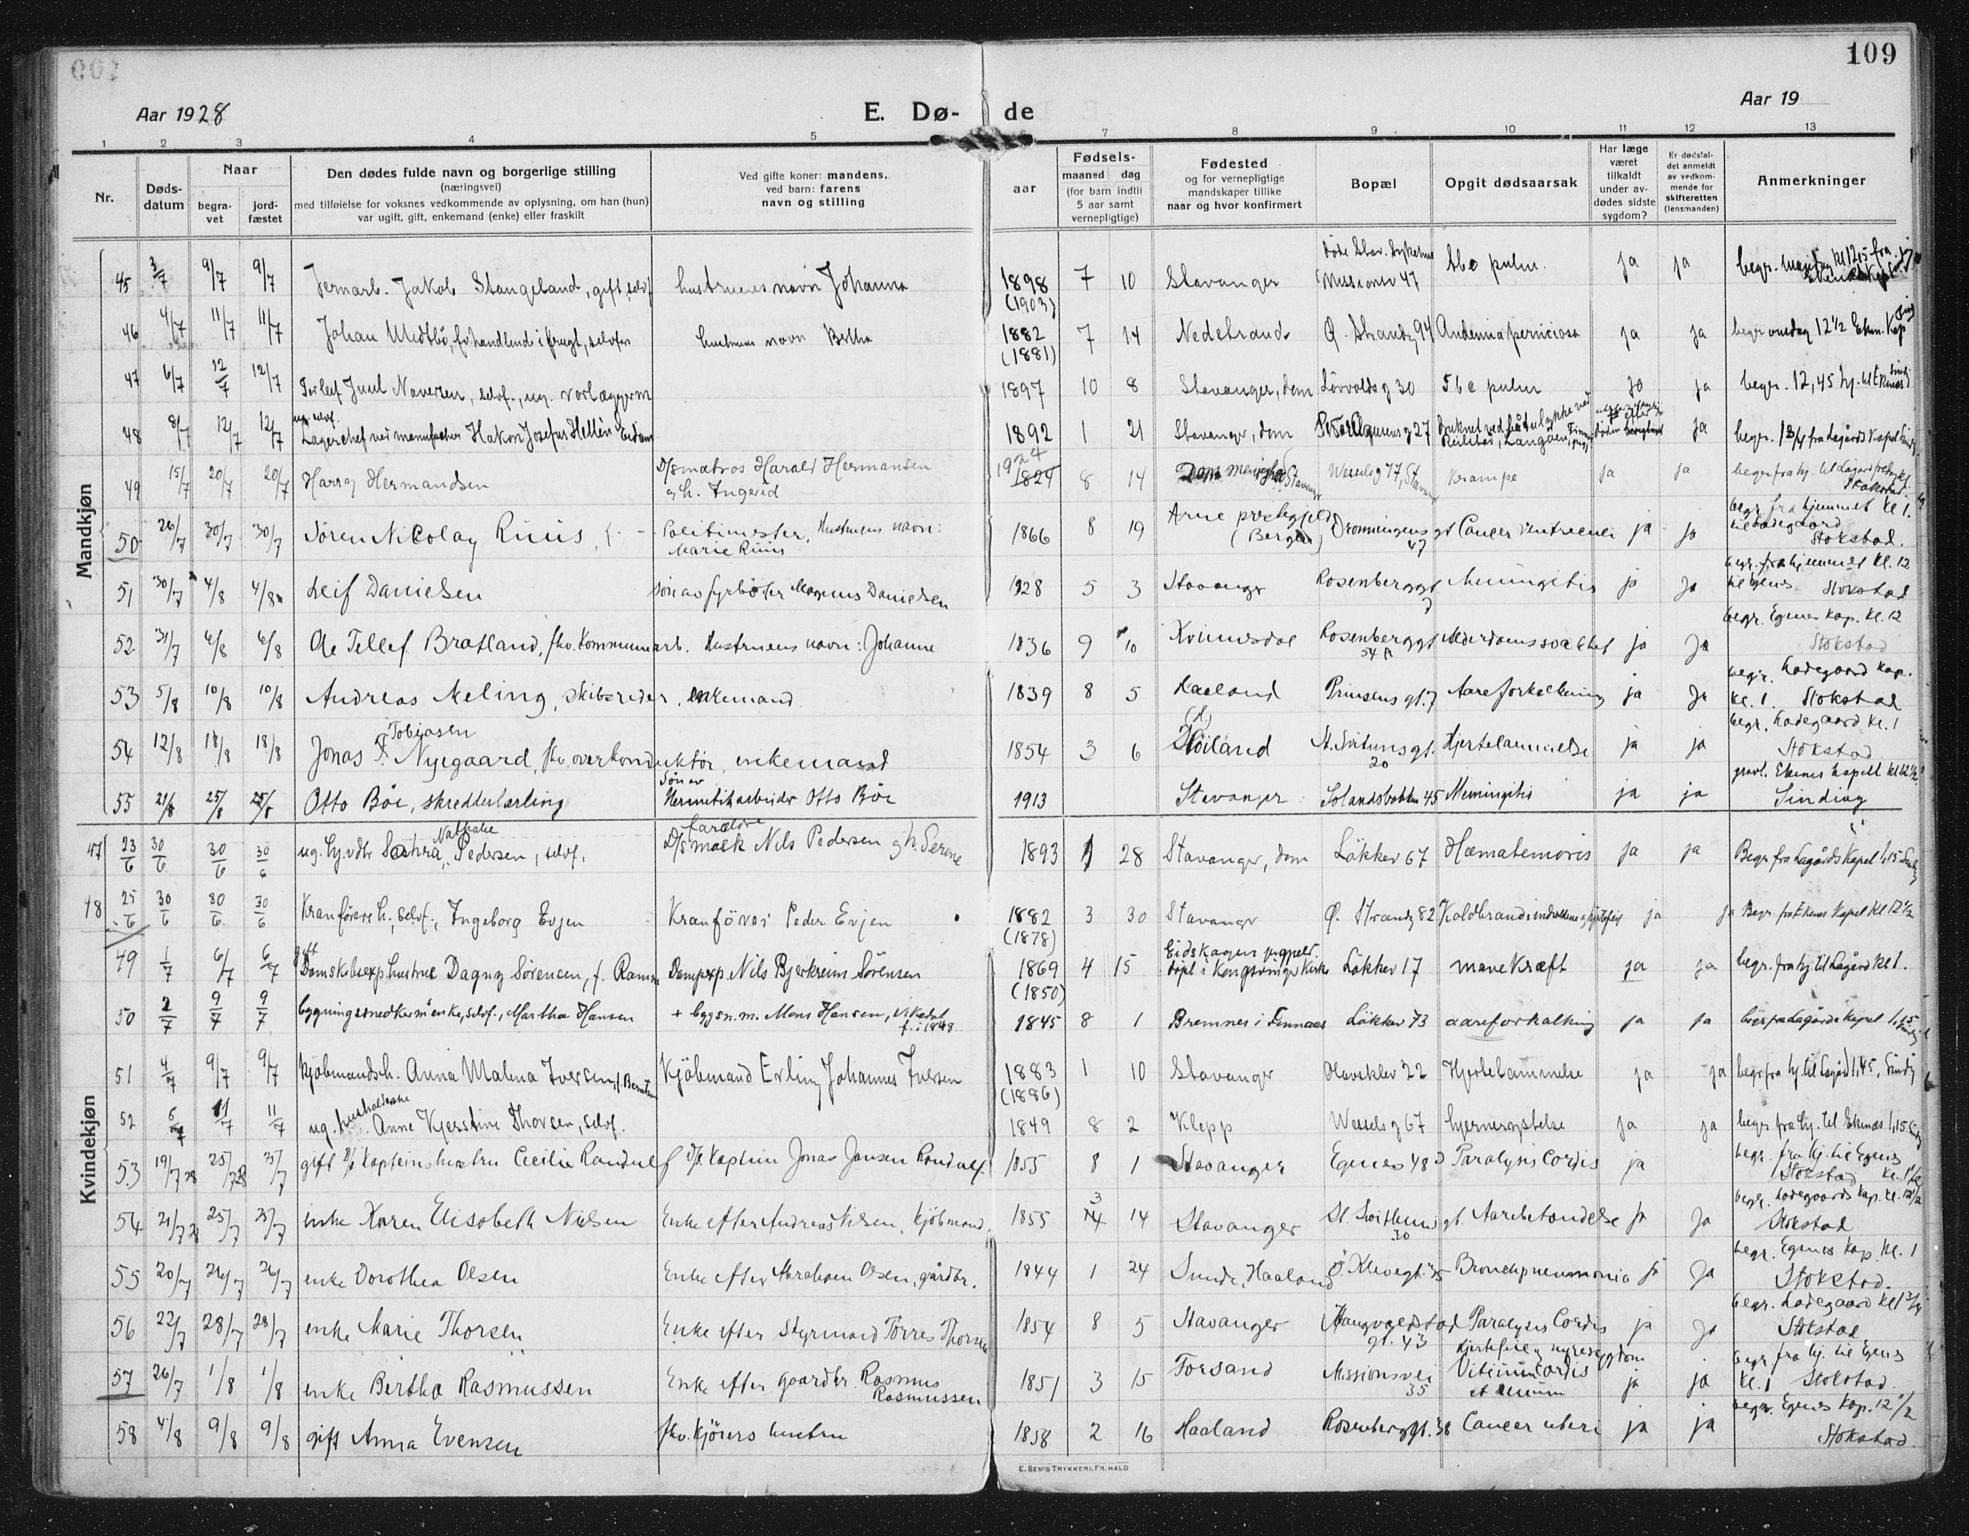 109
Aar 1928
E. Dø- de
Aar 19
1 2 3 4 5 7 8 9 10 11 12 13
Nr.
Døds-
datum
Naar
begra-
vet
jord-
fæstet
Den dødes fulde navn og borgerlige stilling
(næringsvei)
med tilføielse for voksnes vedkommende av oplysning, om han (hun)
var ugift, gift, enkemand (enke) eller fraskilt
Ved gifte koner: mandens,
ved barn: farens
navn og stilling
aar
Fødsels-
maaned dag
(for barn indtil
5 aar samt
vernepligtige)
Fødested
og for vernepligtige
mandskaper tillike
naar og hvor konfirmert
Bopæl
Opgit dødsaarsak
Har læge
været
tilkaldt
under av-
dødes sidste
sygdom?
Er dødsfal-
det anmeldt
av vedkom-
mende for
skifteretten
(lensmanden)
Anmerkninger
Mandkjøn
45 3/7 9/7 9/7 Jernarb. Jakob Stangeland, gift, selvf hustruens navn Johanna 1898 (1903) 7 10 Stavanger Missionsv 47 tbc pulm. ja ja
46 4/7 11/7 11/7 Johan handlende i frugt, selvfor hustruens navn Bertha 1882 (1881) 7 14 Nedstrand Ø. Strandg 94 perniciosa ja ja begr. onsdag 12 1/2 Kap
47 6/7 12/7 12/7 Torleif Juul selvf., ug. 1897 10 8 Stavanger, dom Løvvoldsg 30 tbc pulm ja ja begr. 12,45
48 8/7 12/7 12/7 ug. selvf. Lagerchef ved manufactur Hakon Josefus Hellén 1892 1 21 Stavanger, dom 27 druknet ved ja begr. fra Lagårds Kapel
49 15/7 20/7 20/7 Harry Hermandsen D/smatros Harald Hermansen og h. Ingerid 1924 1824 8 14 Stavanger Wesselsg 77, Stavanger Krampe ja ja begr. fra hj. til Lagård Stokstad.
50 26/7 30/7 30/7 Søren Nicolay Ruus, Politimester, Hustruens navn: Marie Ruus 1866 8 19 Arne prestegjeld (Bergen) Dronningens gt 47 Cancer ventriculi ja ja begr. fra hjemmet kl. 1. til Ladegaard Stokstad.
51 30/7 4/8 4/8 Leif Danielsen søn av fyrbøter Magnus Danielsen 1928 5 3 Stavanger Rosenberggt 7 Meningitis ja ja begr. fra hjemmet kl. 12 til Egenes Stokstad
52 31/7 6/8 6/8 Ole Tellef Bratland, fhv. kommunearb. Hustruens navn: Johanne 1836 9 10 Kvinesdal Rosenberggt 54 A Alderdomssvakhet ja ja begr. Egenes kap. kl. 12 Stokstad
53 5/8 10/8 10/8 Andreas Meling, skibsreder, enkemand 1839 8 5 Haaland Prinsens gt. 7 Aareforkalkning ja ja begr. Ladegaard kap. kl. 1. Stokstad
54 12/8 18/8 18/8 Jonas T. Tobiasen Nygaard, fhv. overkonduktør, enkemand 1854 3 6 Høiland St. Svituns gt. 20 Hjertelammelse ja ja begr. Ladegaard kl. 1 Stokstad
55 21/8 25/8 25/8 Otto Bøe, skredderlærling Søn av Hermetikarbeider Otto Bøe 1913 Stavanger Solandsbakken 45 Meningitis ja ja Ekenes kapell kl 12 1/2 Sinding
Kvindekjøn
47 23/6 30/6 30/6 30/6 ug. Nathalie Pedersen, selvf. forældre Nils Pedersen og h. Serene 1893 1 28 Stavanger, dom Løkkev 67 Hæmatemesis ja ja Begr fra Lagårds Kapel 1,15
48 25/6 30/6 30/6 30/6 Kranførers h., selvf., Ingeborg Evjen Kranfører Peder Evjen 1882 (1878) 3 30 Stavanger Ø. Strandg 82 Koldbrand ja ja Begr. fra Ekenes Kapel kl 12 1/2
49 1/7 6/7 6/7 gift hustrue Dagny Sørensen, f. Ramm Dampexp. Nils Bjerkreim Sørensen 1869 (1850) 4 15 Eidskogen døpt i Kongsvinger Kirke Løkkev 17 mavekræft ja ja begr. fra hj. til Lagård kl 1.
50 2/7 9/7 9/7 bygningssnedkerm enke, selvf., Martha Hansen + bygsn.m. Mons Hansen, Vikedal f. i 1848 1845 8 1 Bremnes i Finnaas Løkkev 73 aareforkalkning ja ja begr fra Lagårds Kapel 1,15
51 4/7 9/7 9/7 Kjøbmandsh. Anna Malena Iversen, f. Berntsen Kjøbmand Erling Johannes Iversen 1883 (1886) 1 10 Stavanger Haveklev 22 Hjertelammelse ja ja begr fra hj. til Lagård 1,45, Sinding
52 5/7 11/7 11/7 ug. husholderske Anne Kjerstine Thorsen, selvf. 1849 8 2 Klepp Wesselsg 67 hjernerystelse ja ja begr. fra hj. til Ekenes 1,15
53 19/7 28 25/7 28 25/7 gift D/s Kapteins hustru Cecilie Randulf D/s. Kaptein Jonas Jansen Randulf. 1855 8 1 Stavanger Egenes 48 Paralysis Cordis ja begr. fra hj. til Egenes Stokstad kl. 1 1/2
54 21/7 28 25/7 25/7 enke Karen Elisabeth Nielsen Enke efter Andreas Nilsen, kjøbmand. 1855 3 14 Stavanger St. Svithuns gt. 30 Aarebetændelse ja ja begr. Ladegaards kap. kl. 12 1/2 Stokstad
55 20/7 26/7 26/7 enke Dorothea Olsen Enke efter Abraham Olsen, gårdbr. 1844 1 24 Sunde, Haaland Ø. Klevegt. 35 Bronchpneumonia ja ja begr. Egenes kap. kl. 1 Stokstad.
56 22/7 28/7 28/7 enke Marie Thorsen Enke efter Styrmand Torres Thorsen 1854 8 5 Stavanger gt. 43 Paralysis Cordis ja ja begr. Ladegaard kl 1 3/4 Stokstad
57 26/7 1/8 1/8 enke Bertha Rasmussen Enke efter gaardbr. Rasmus Rasmussen 1851 3 15 Forsand Missionsvei 35 Hjertefeil og nyresygdom Vitium Cordis ja ja begr. fra hj. til Egenes kl. 1 Stokstad.
58 4/8 9/8 9/8 gift Anna Evensen fhv. kjørers hustru 1858 2 16 Haaland Rosenberggt. 38 Cancer uteri ja ja begr. Egenes kap. 12 1/2 Stokstad.
E. SEM'S TRYKKERI, FR. HALD